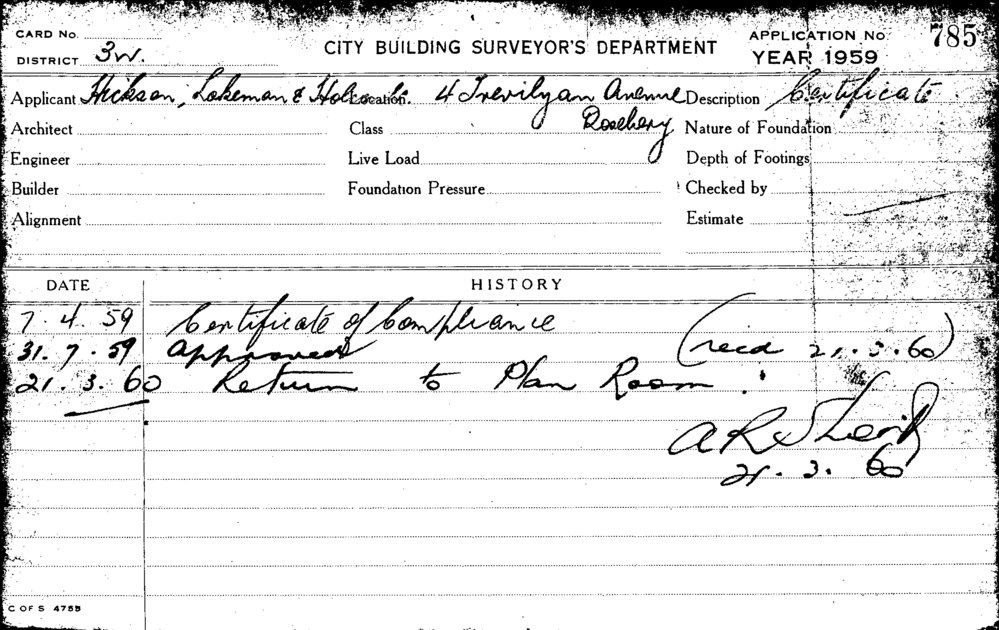 CARD No.
CITY BUILDING SURVEYOR'S DEPARTMENT
APPLICATION No. 785
DISTRICT 3W.
YEAR 1959
Applicant Hickson, Lakeman & Location. 4 Trevilyan Avenue Description Certificate
Rosebery
Architect Class Nature of Foundation
Engineer Live Load Depth of Footings
Builder Foundation Pressure Checked by
Alignment Estimate
DATE HISTORY
7. 4. 59 Certificate of Compliance
31. 7. 59 Approved (recd 21. 3. 60)
21. 3. 60 Return to Plan Room.
21. 3. 60
C OF S 4755